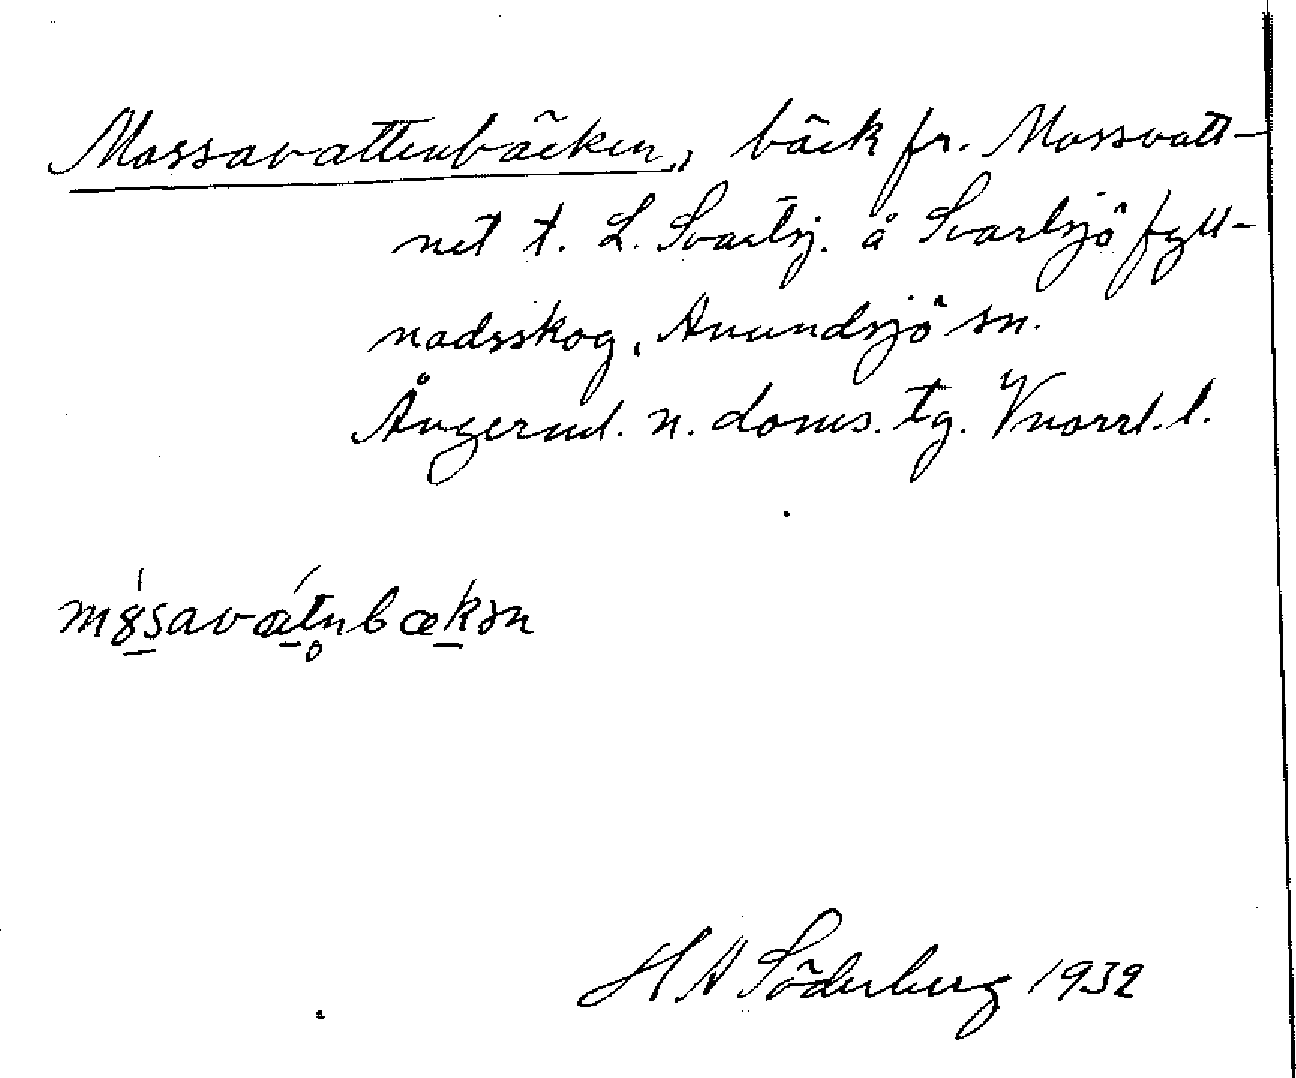 Mossavattenbäcken, bäck fr. Mossvatt-
net t. L. Svartsj. å Svartsjö fyll-
nadsskog, Anundsjö sn.
Ångerml. n. doms. tg. Vnorrl. l.
m8savætn̥bækən
H A Söderberg 1932